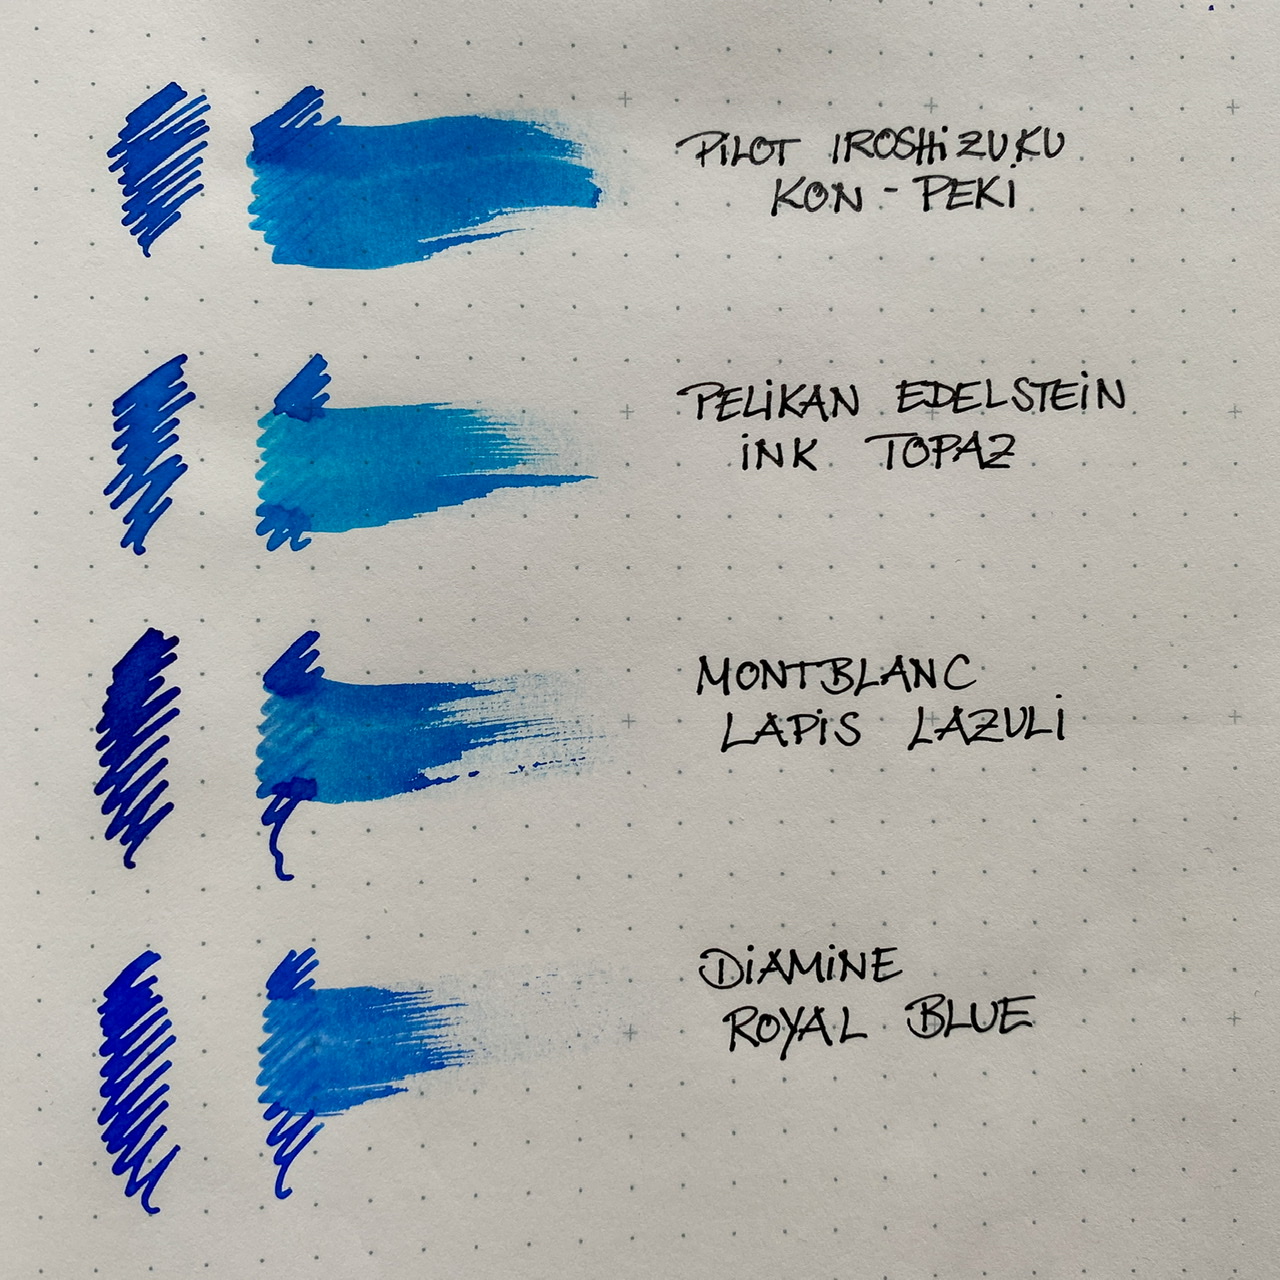 PILOT IROSHIZUKU
KON - PEKI
PELIKAN EDELSTEIN
INK TOPAZ
MONTBLANC
LAPIS LAZULI
DIAMINE
ROYAL BLUE